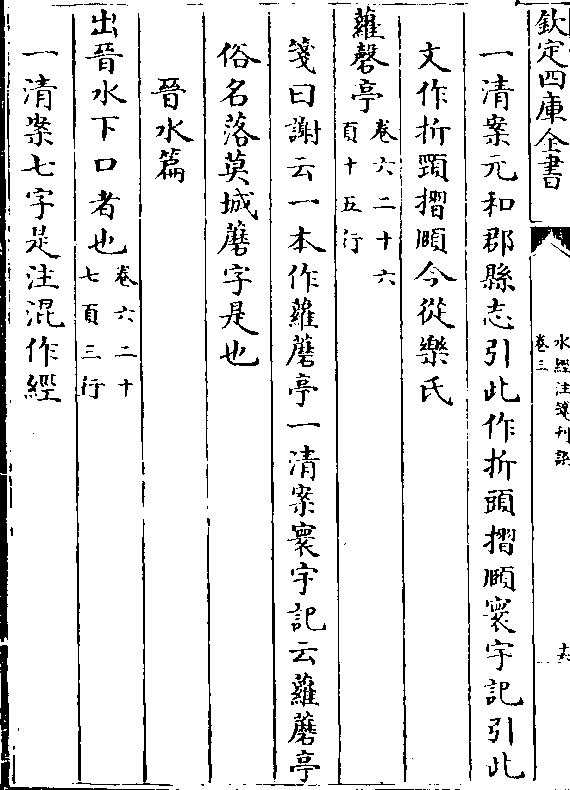 欽定四庫全書
水經注箋刊誤
卷三
一清案元和郡縣志引此作折頭摺頤寰宇記引此
文作折頸摺頤今從樂氏
蘿磬亭卷六二十六
頁十五行
箋曰謝云一本作蘿蘑亭一清案寰宇記云蘿蘑亭
俗名落莫城蘑字是也
晉水篇
出晉水下口者也卷六二十
七頁三行
一清案七字是注混作經